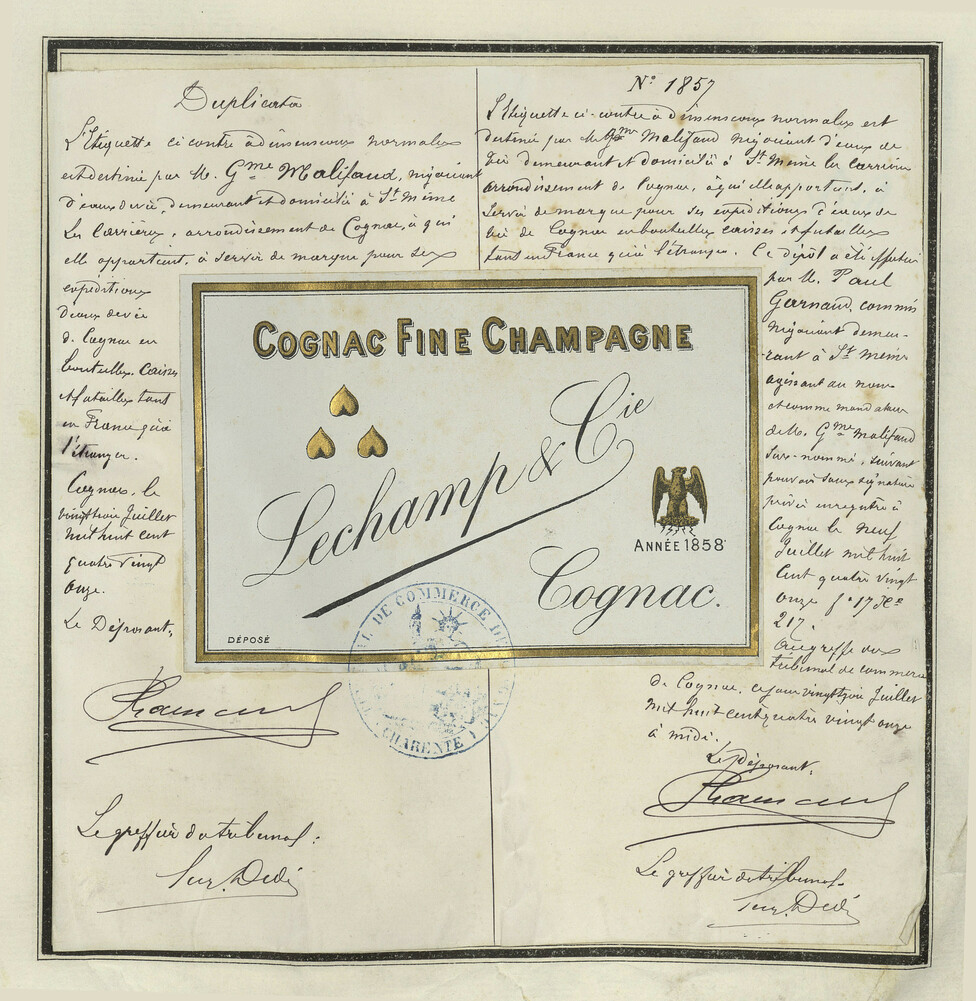 Duplicata
L'Etiquette ci contre à dimensions normales
est destinée par M. Gme Malifaud, négociant
d'eaux de vie, demeurant et domicilié à St Même
les Carrières, arrondissement de Cognac, à qui
elle appartient, à servir de marque pour ses
expéditions
d'eaux de vie
de Cognac en
bouteilles, caisses
et futailles tant
en France qu'à
l'étranger.
Cognac, le
vingt trois Juillet
mil huit cent
quatre vingt
onze.
Le Déposant,
Le greffier du tribunal:
No 1857
L'Etiquette ci-contre à dimensions normales est
destinée par M. Gme Malifaud négociant d'eaux de
vie demeurant et domicilié à St Même les Carrières
arrondissement de Cognac, à qui elle appartient, à
servir de marque pour ses expéditions d'eaux de
vie de Cognac en bouteilles caisses et futailles
tant en France qu'à l'étranger. Ce dépôt a été effectué
par M. Paul
Garnaud, commis
négociant demeu-
rant à St Même
agissant au nom
et comme mandataire
de M. Gme Malifaud
sus-nommé, suivant
pouvoir sous signature
privée enregistré à
Cognac le neuf
Juillet mil huit
cent quatre vingt
onze fo 17
217.
Au greffe du
tribunal de commerce
de Cognac, ce jour vingt trois Juillet
mil huit cent quatre vingt onze
à midi.
Le Déposant,
Le greffier du tribunal
COGNAC FINE CHAMPAGNE
Lechamp & Cie
ANNÉE 1858
Cognac.
DÉPOSÉ
DE COMMERCE DE
CHARENTE